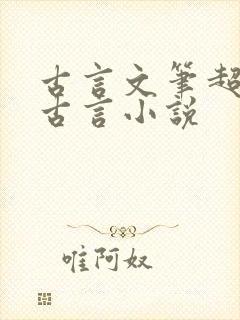 古言文筆超
古言小說
唯阿奴